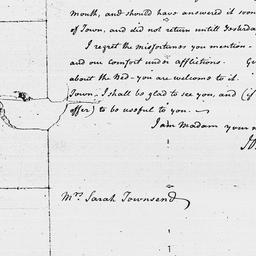 mouth, and should have answered it soon
of Town, and did not return untill Yesterda
I regret the misfortunes you mention.
and our comfort under afflictions. G
about the Bed - you are welcome to it.
Town - I shall be glad to see you, and (if
offer) to be useful to you.
I am Madam your
Mrs. Sarah Townsend